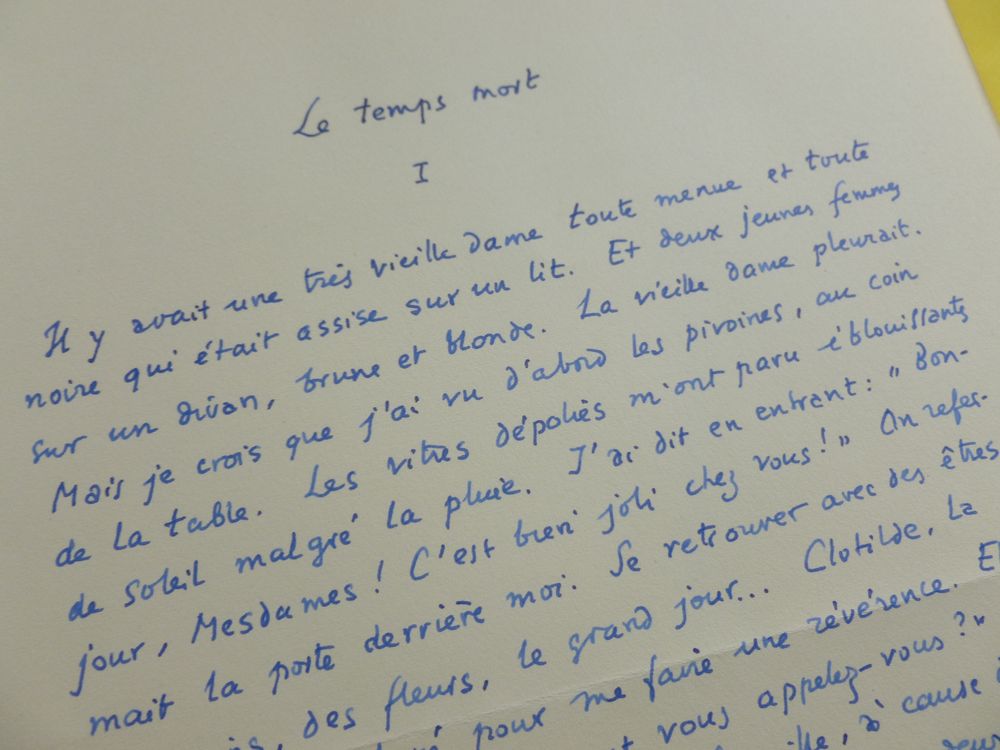 Le temps mort
I
Il y avait une très vieille dame toute menue et toute
noire qui était assise sur un lit. Et deux jeunes femmes
sur un divan, brune et blonde. La vieille dame pleurait.
Mais je crois que j'ai vu d'abord les pivoines, au coin
de la table. Les vitres dépolies m'ont paru éblouissantes
de soleil malgré la pluie. J'ai dit en entrant : "Bon-
jour, Mesdames ! C'est bien joli chez vous !" On refer-
mait la porte derrière moi. Se retrouver avec des êtres
des fleurs, le grand jour... Clotilde, la
pour me faire une révérence. El
vous appelez-vous ?"
à cause